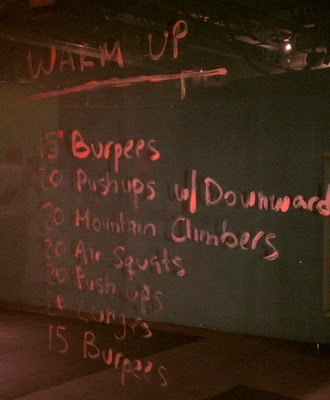 WARM UP
15 Burpees
20 Pushups w/ Downward
20 Mountain Climbers
20 Air Squats
20 Push ups
20 Lunges
15 Burpees